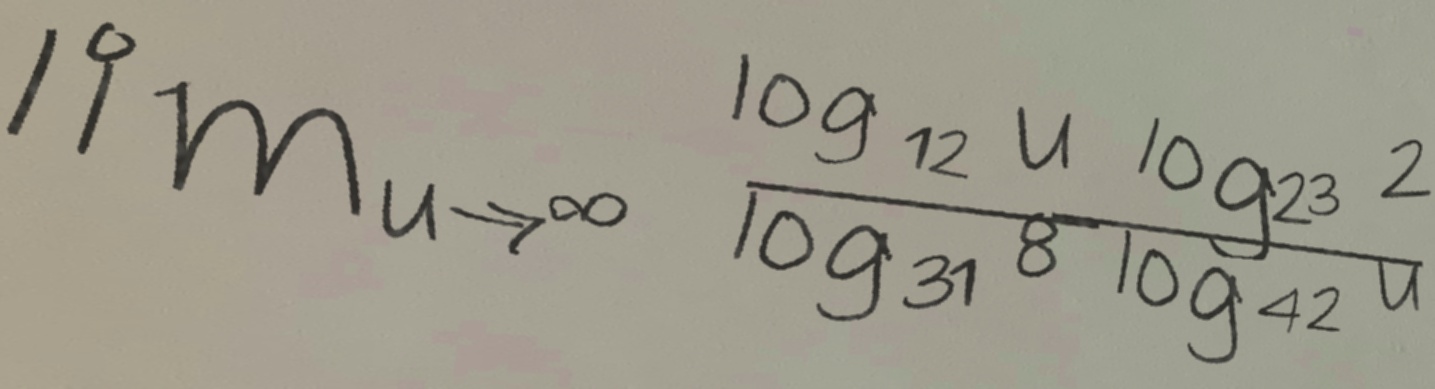 \lim_{u \to \infty} \frac{\log_{12} u \log_{23} 2}{\log_{31} 8 \log_{42} u}